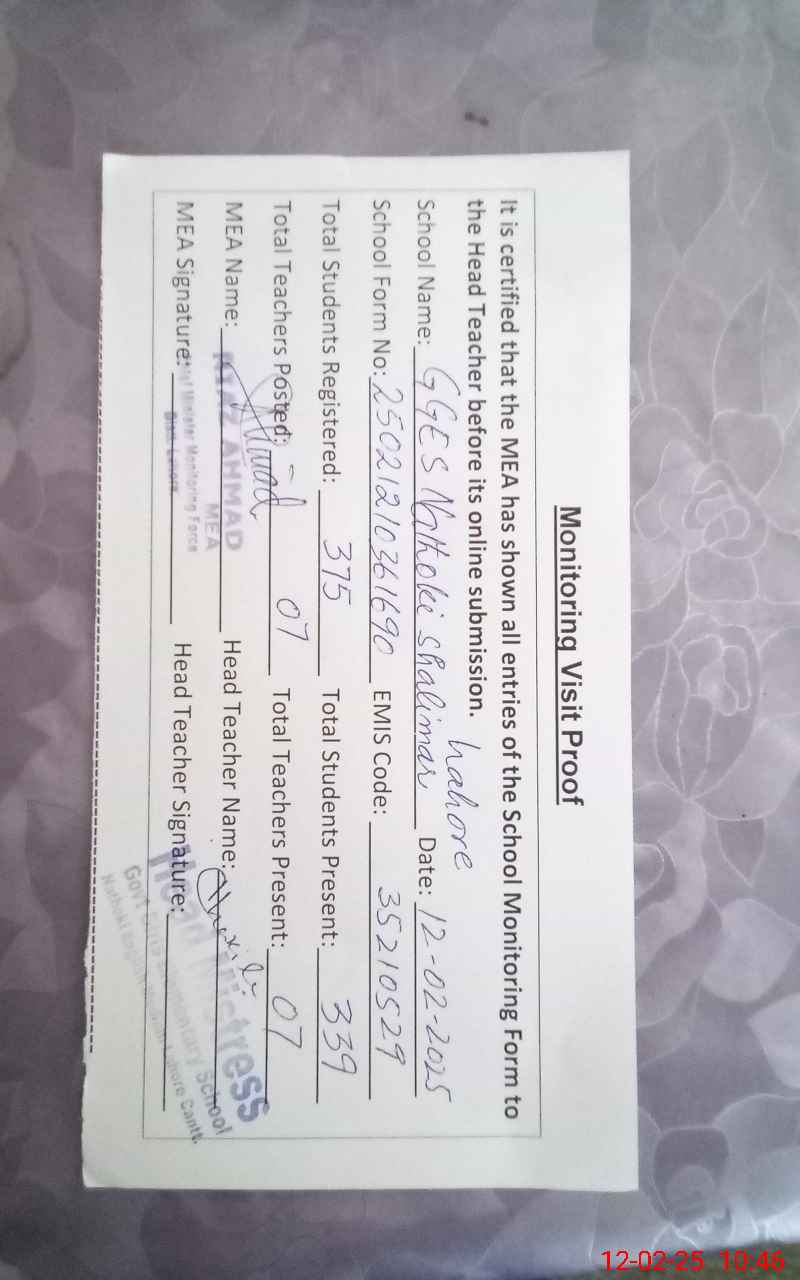 Monitoring Visit Proof
It is certified that the MEA has shown all entries of the School Monitoring Form to
the Head Teacher before its online submission.
Lahore
School Name: GGES Nathoki Shalimar Date: 12-02-2025
School Form No: 25021210361690 EMIS Code: 35210529
Total Students Registered: 375 Total Students Present: 339
Total Teachers Posted: 07 Total Teachers Present: 07
Ahmad
MEA Name: NIAZ AHMAD Head Teacher Name:
MEA
MEA Signature: Chief Minister Monitoring Force Head Teacher Signature:
Distt Lahore
Head Mistress
Govt Girls Elementary School
Nathoki Lahore Cantt.
12-02-25 10:46